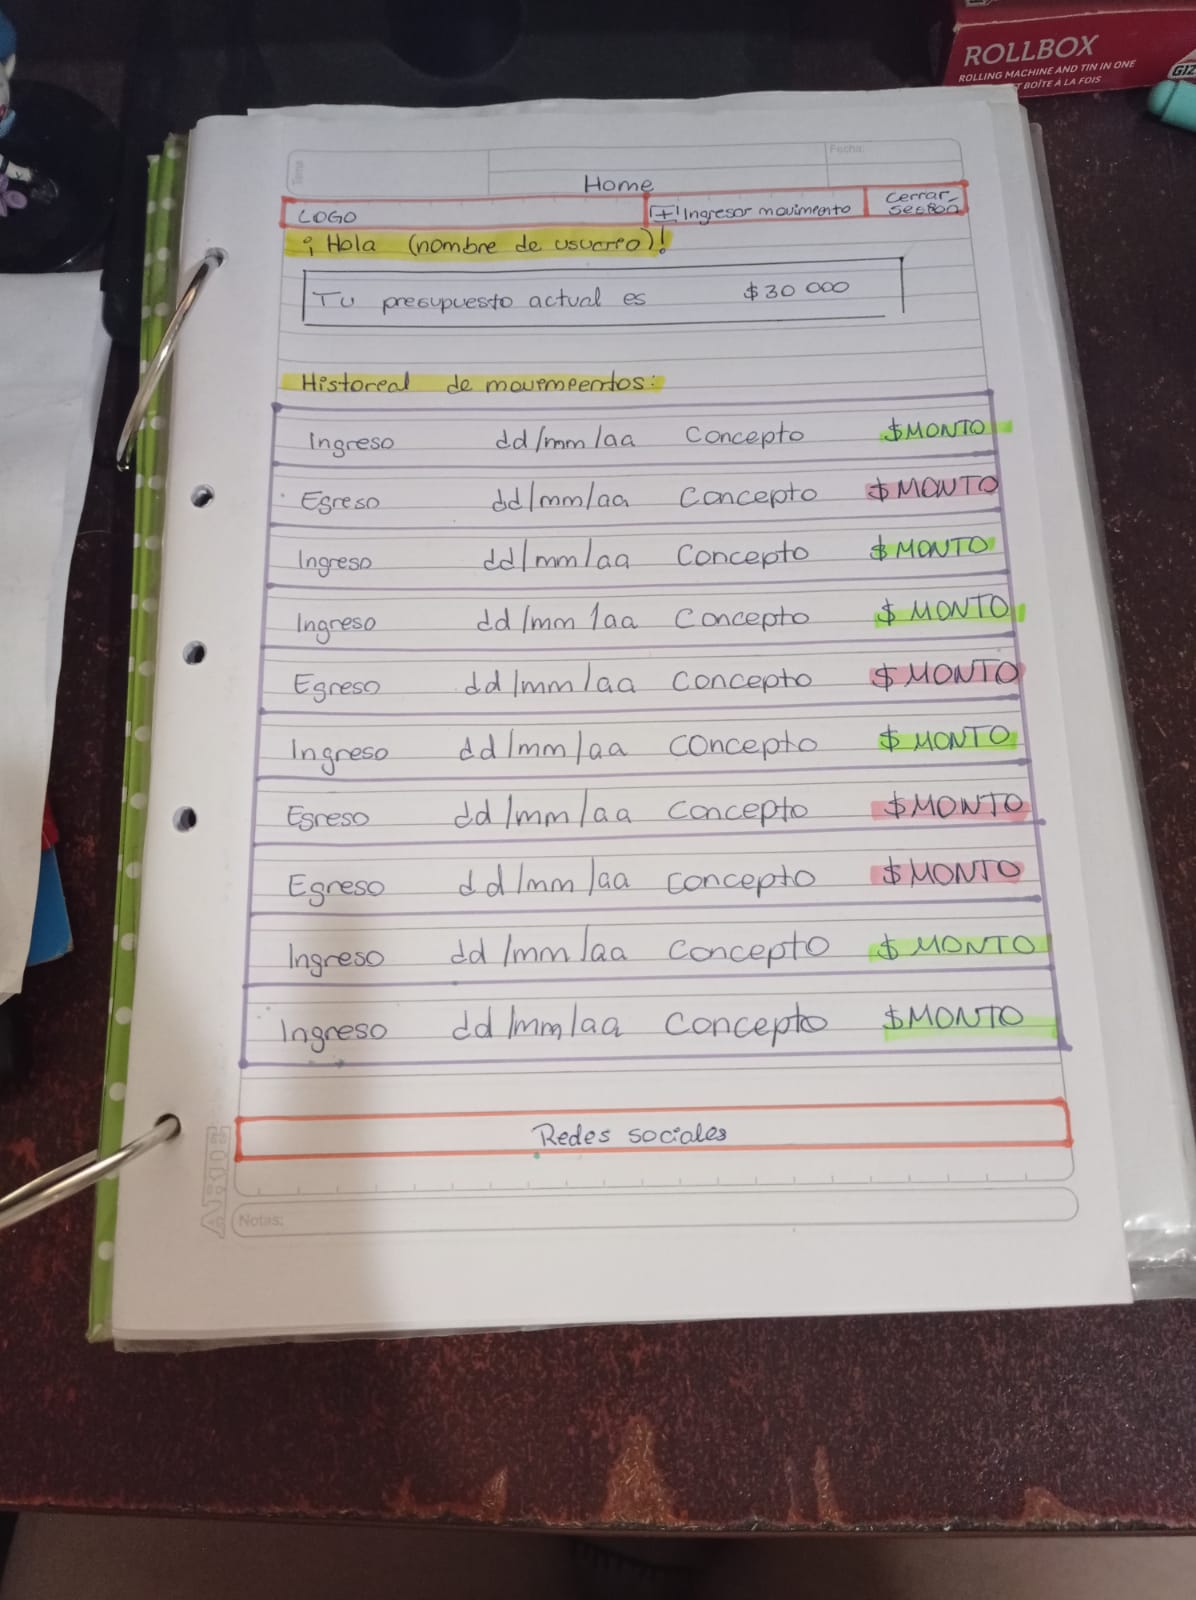 ROLLBOX
ROLLING MACHINE AND TIN IN ONE
T BOÎTE À LA FOIS
GIZ
Tema
Fecha:
Home
LOGO
+ Ingresar movimiento
Cerrar sesión
¡Hola (nombre de usuario)!
Tu presupuesto actual es $30 000
Historial de movimientos:
Ingreso dd/mm/aa Concepto $MONTO
Egreso dd/mm/aa Concepto $MONTO
Ingreso dd/mm/aa Concepto $MONTO
Ingreso dd/mm/aa Concepto $MONTO
Egreso dd/mm/aa Concepto $MONTO
Ingreso dd/mm/aa Concepto $MONTO
Egreso dd/mm/aa Concepto $MONTO
Egreso dd/mm/aa Concepto $MONTO
Ingreso dd/mm/aa Concepto $MONTO
Ingreso dd/mm/aa Concepto $MONTO
Redes sociales
Notas: